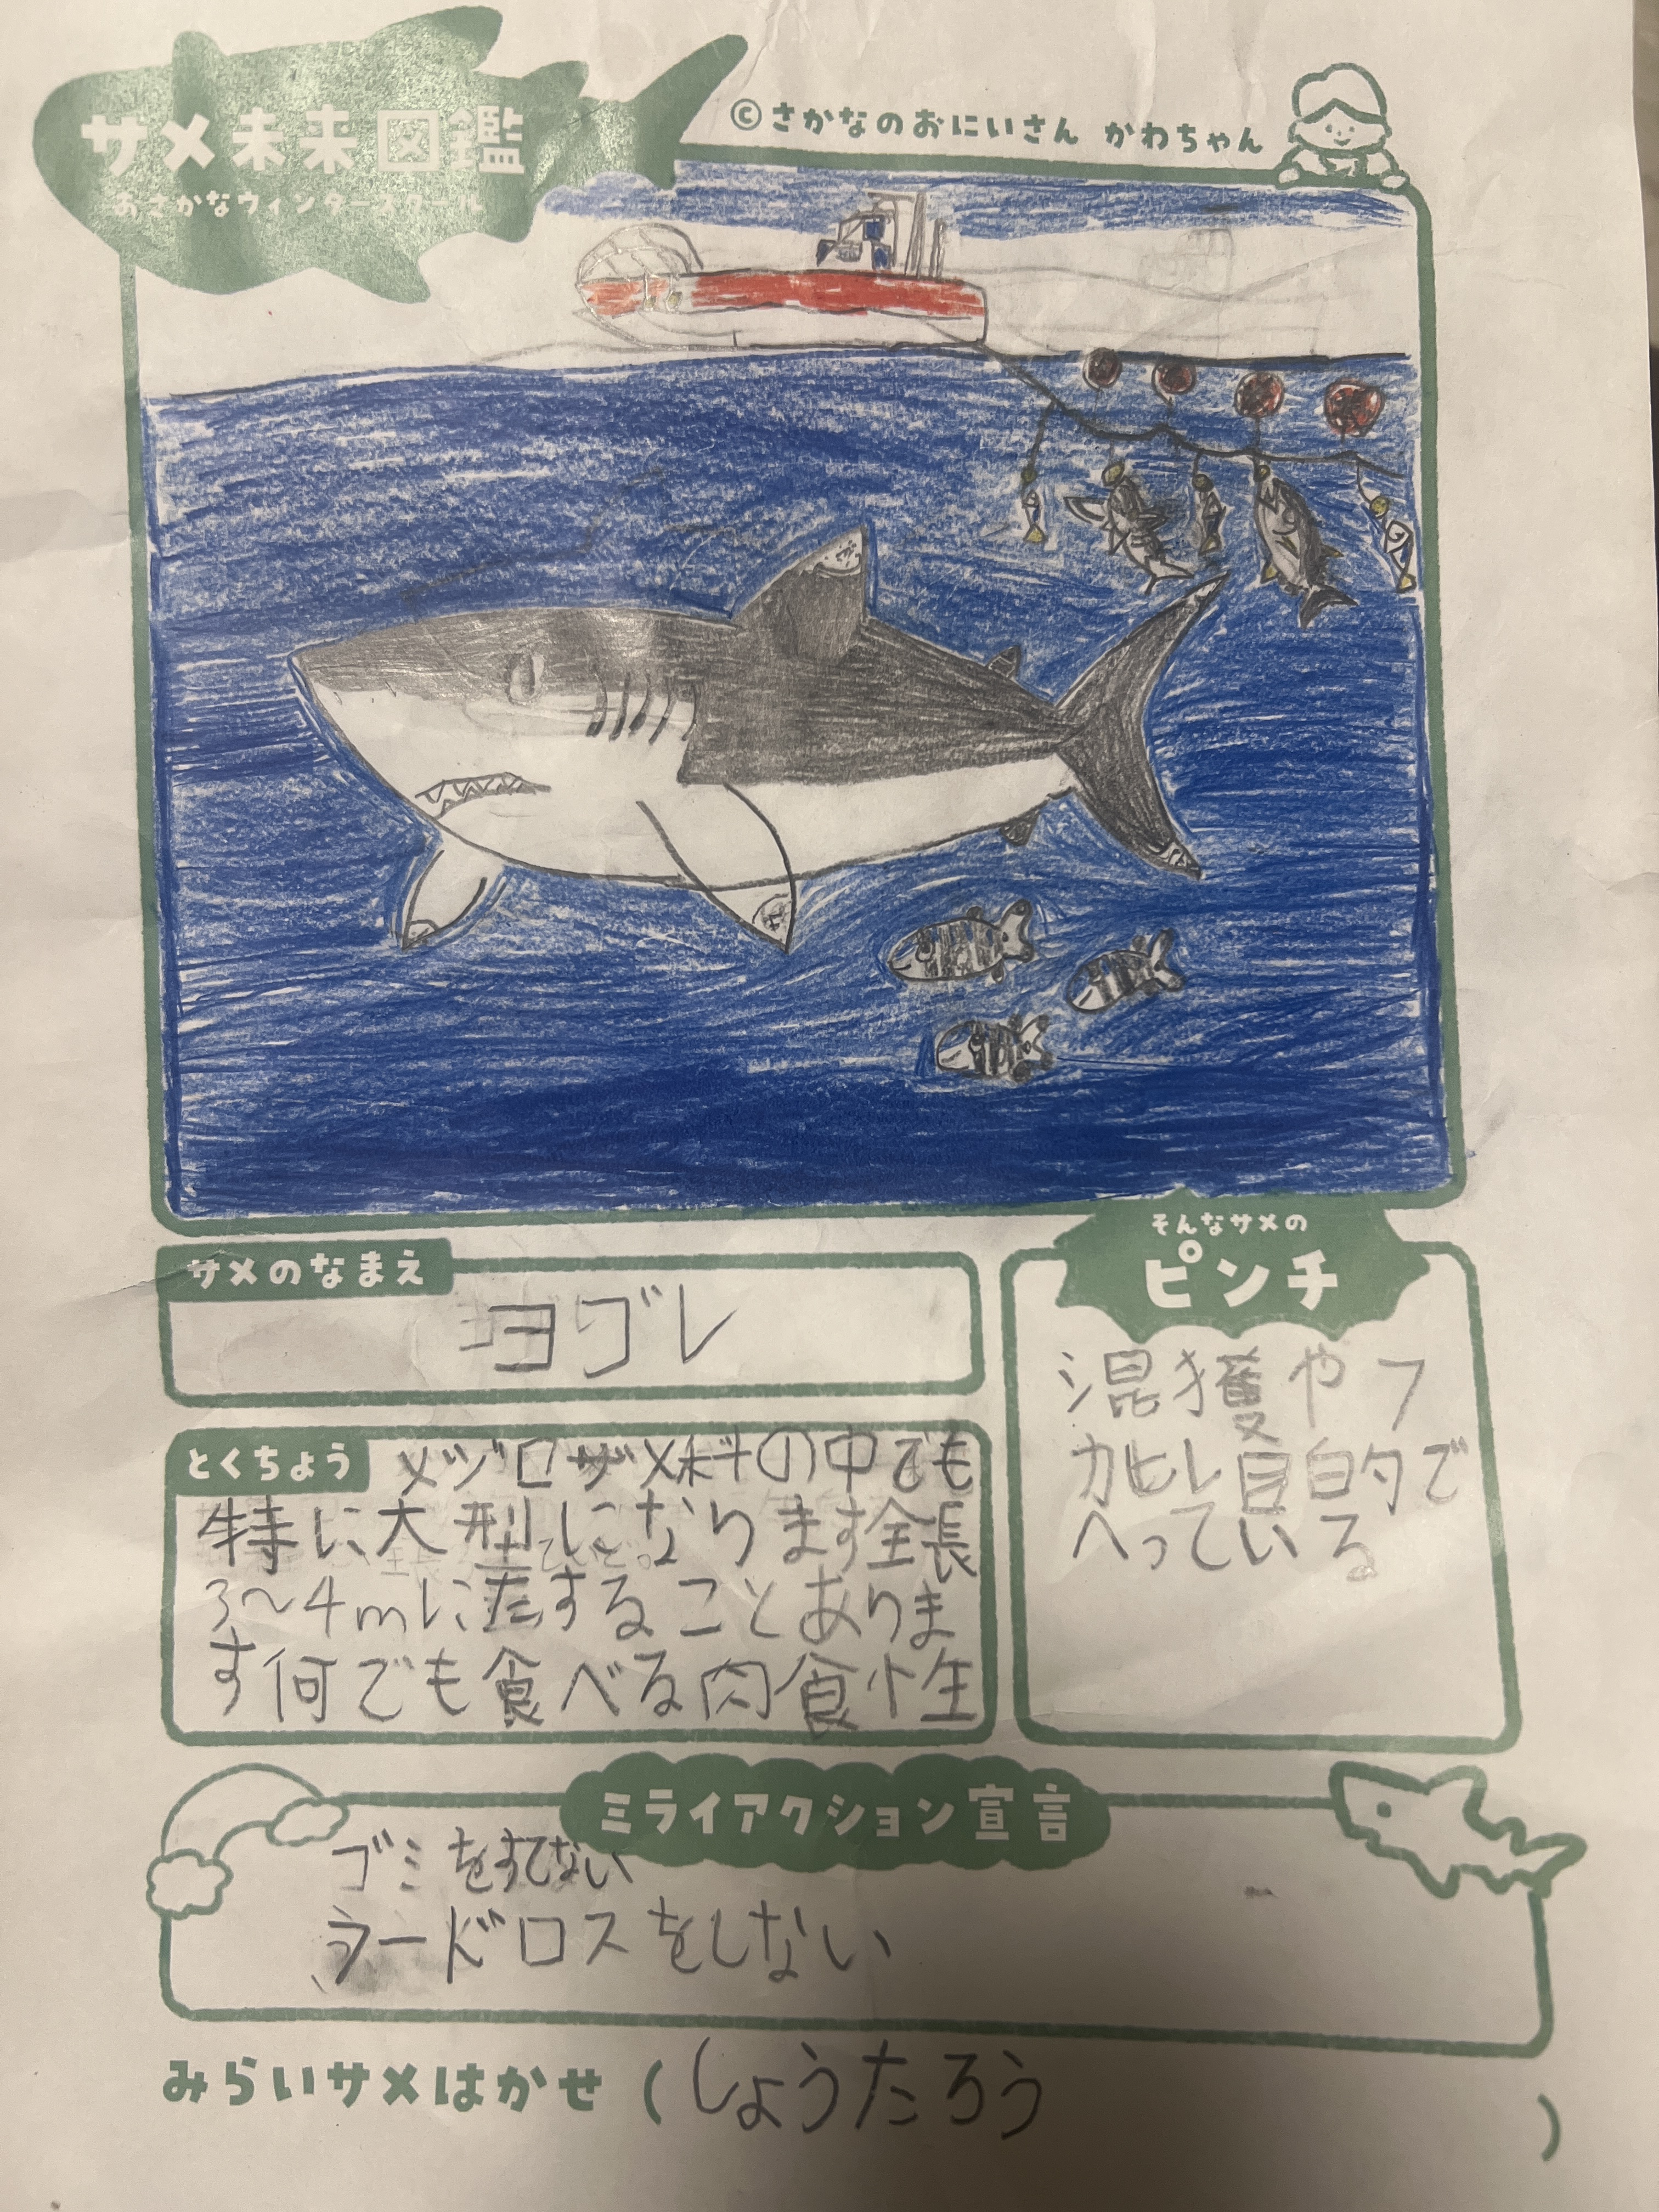 サメ未来図鑑
おさかなウィンタースクール
©さかなのおにいさん かわちゃん
サメのなまえ
ヨゴレ
とくちょう
メジロザメ科の中でも
特に大型になります全長
3〜4mに達することあります
す何でも食べる肉食性
そんなサメの
ピンチ
混獲やフ
カヒレ目的で
へっている
ミライアクション宣言
ゴミをすてない
フードロスをしない
みらいサメはかせ (しょうたろう)